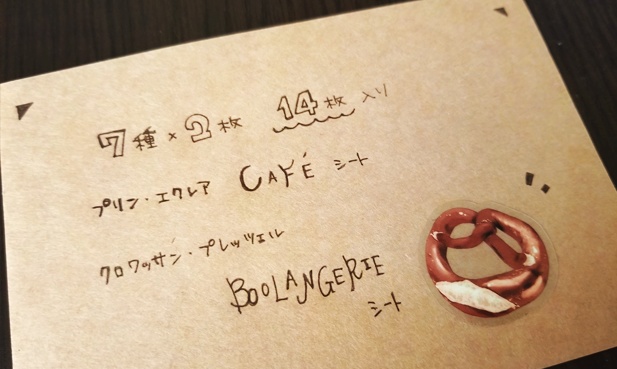 7種×2枚 14枚入り
プリン・エクレア CAFÉ シート
クロワッサン・プレッツェル
BOOLANGERIE
シート